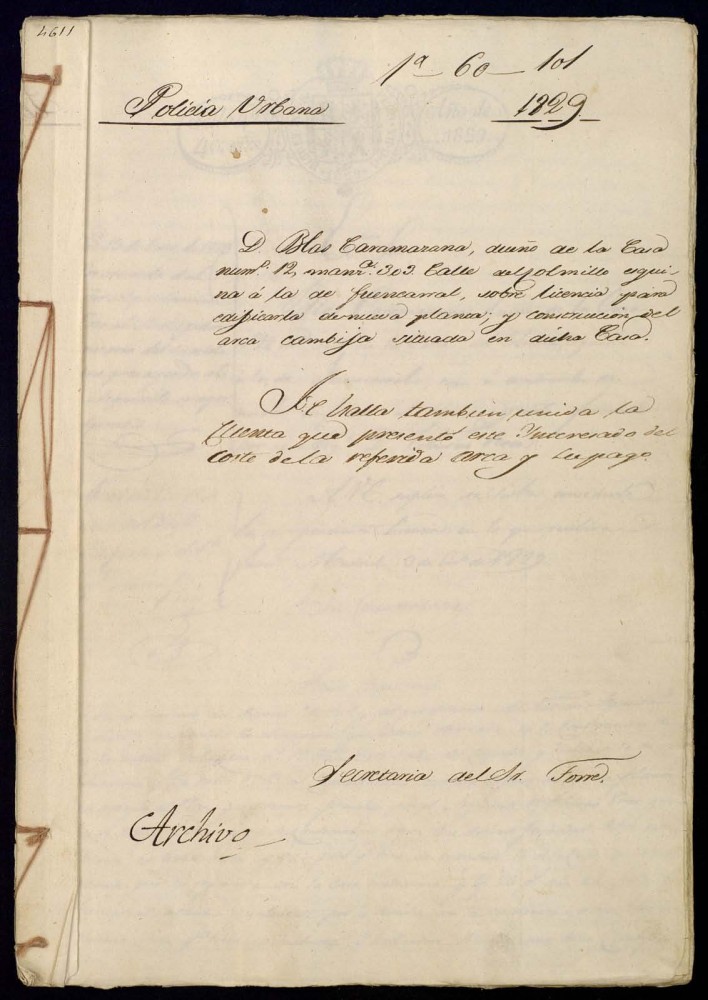 4611
1ª-60-101
Policía Urbana
1829
D. Blas Caramazana, dueño de la Casa
numº. 12, manzª. 303. Calle del Colmillo esqui-
na á la de Fuencarral, sobre licencia para
edificarla de nueva planta; y construccion del
arca cambija situada en dicha Casa.
Se halla tambien unida la
Cuenta que presentó este Interesado del
Coste de la referida Arca y su pago.
Secretaria del Sr. Torre.
Archivo